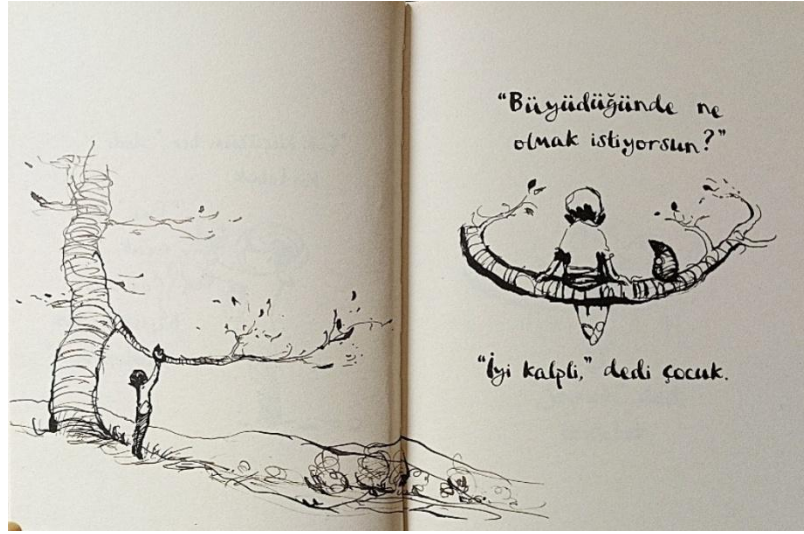 “Büyüdüğünde ne
olmak istiyorsun?”
“İyi kalpli,” dedi çocuk.